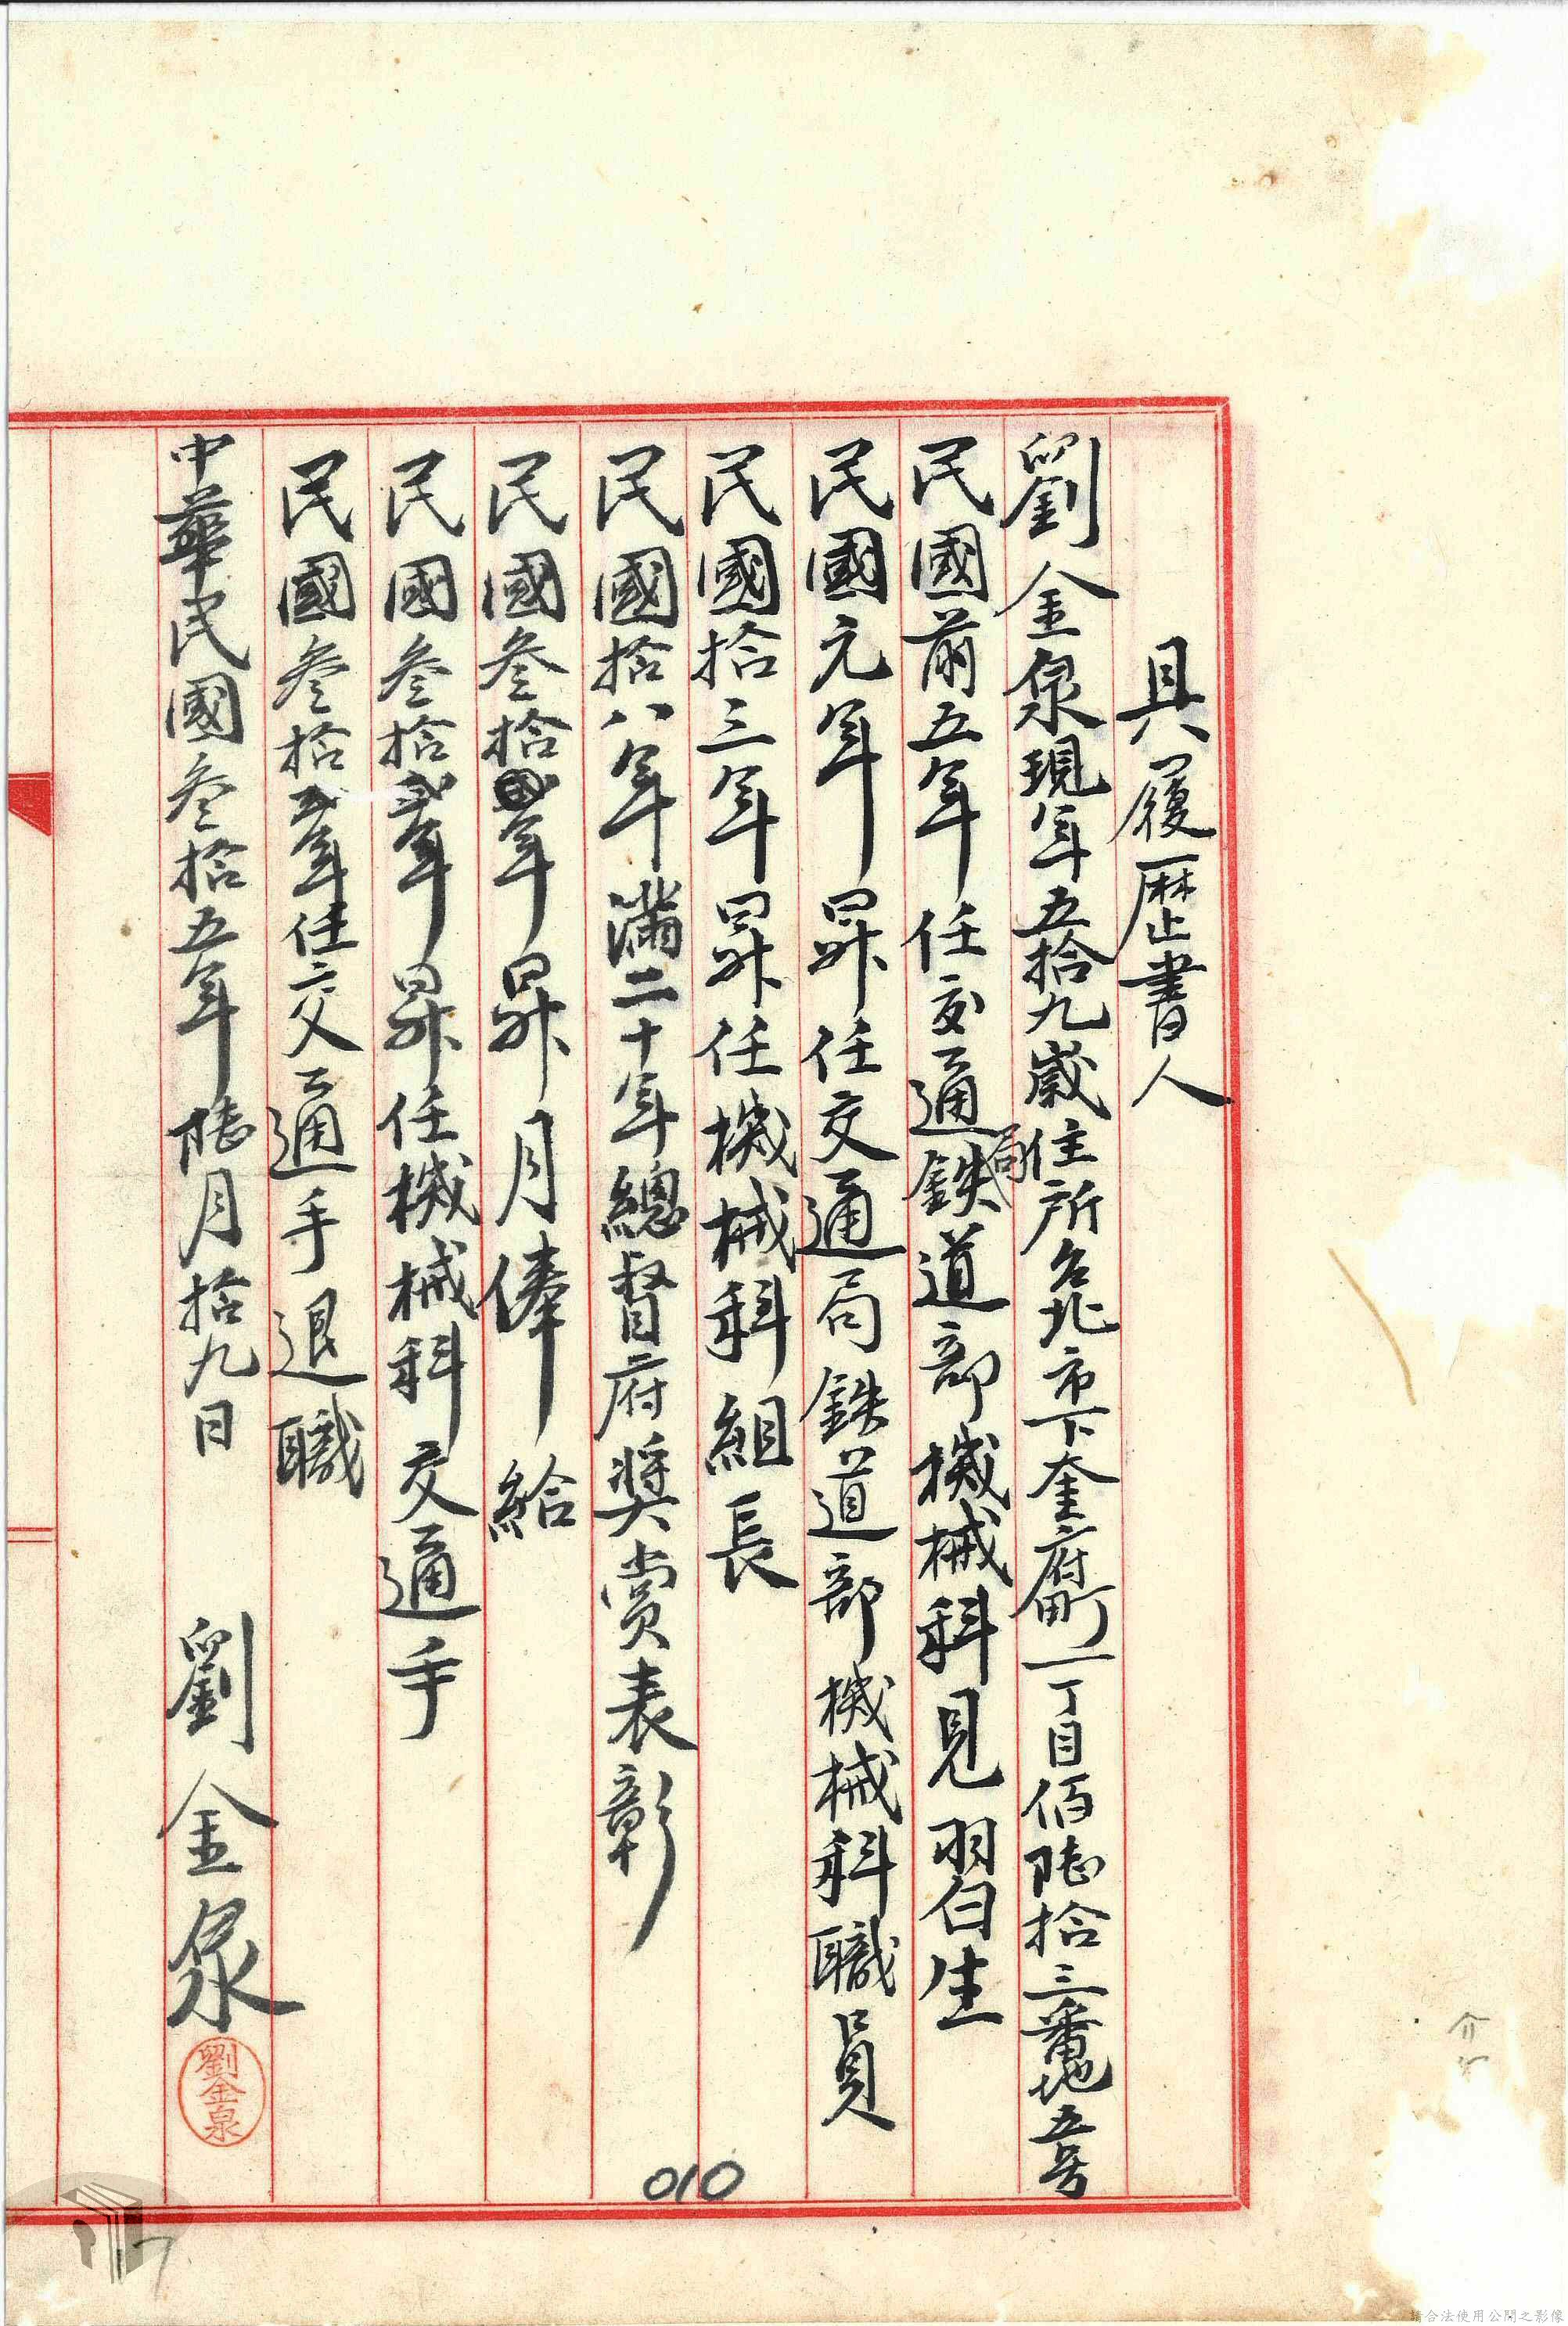 具履歷書人
劉金泉現年五拾九歲住所台北市下奎府町一丁目佰陸拾三番地五号
民國前五年任交通局鉄道部機械科見習生
民國元年昇任交通局鉄道部機械科職員
民國拾三年昇任機械科組長
民國拾八年滿二十年總督府奨賞表彰
民國叁拾年昇月俸給
民國叁拾年昇任機械科交通手
民國叁拾年任交通手退職
中華民國叁拾五年陸月拾九日 劉金泉
劉金泉
010
請合法使用公開之影像